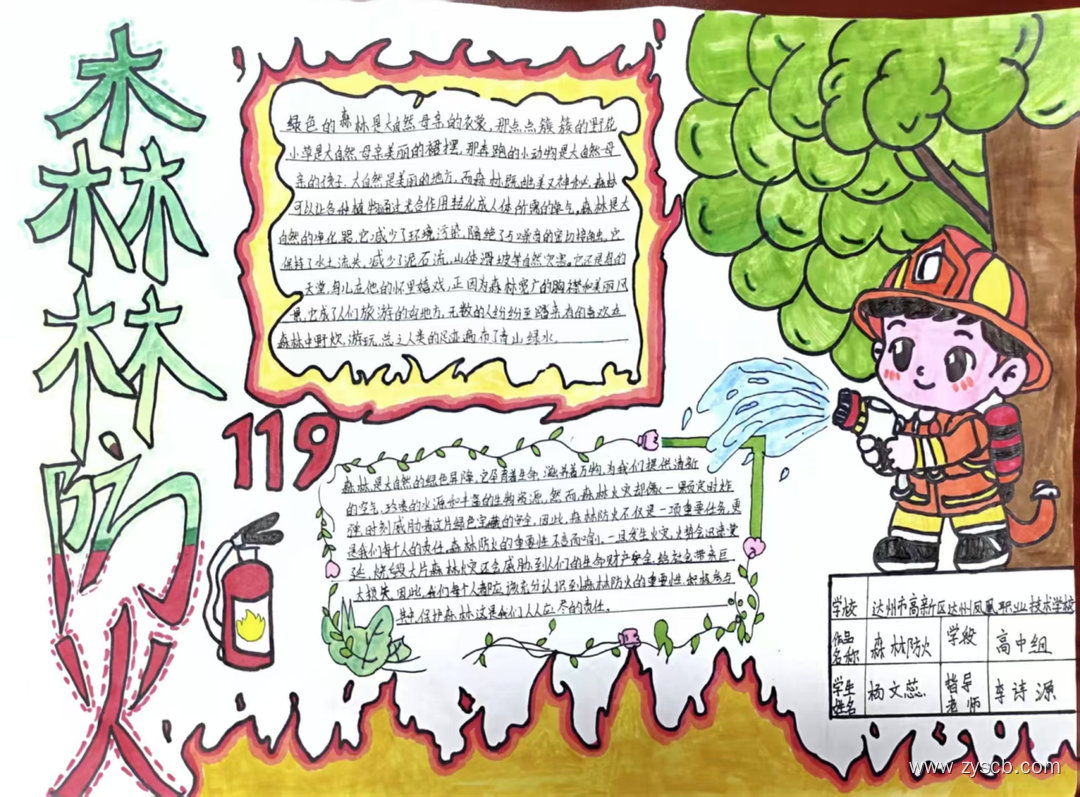 森林防火
绿色的森林是大自然母亲的衣裳,那点点簇簇的野花
小草是大自然母亲美丽的裙摆,那奔跑的小动物是大自然母
亲的孩子,大自然是美丽的地方,而森林既她美又神秘,森林
可以让各种植物通过光合作用转化成人体所需的氧气。森林是大
自然的净化器,它减少了环境污染,隔绝了与噪音的密切接触,它
保持了水土流失,减少了泥石流,山体滑坡等自然灾害。它还是鸟的
天堂,鸟儿在他的怀里嬉戏,正因为森林宽广的胸襟和美丽风
景,它成了人们旅游的好地方,无数的人纷纷至踏来,有的喜欢在
森林中野炊,游玩,总之人类的足迹遍布了青山绿水。
119
森林,是大自然的绿色屏障,它孕育着生命,滋养着万物,为我们提供清新
的空气,珍贵的水源和丰富的生物资源,然而,森林火灾却像一颗不定时炸
弹,时刻威胁着这片绿色宝藏的安全,因此,森林防火不仅是一项重要任务,更
是我们每个人的责任,森林防火的重要性不言而喻,一旦发生火灾,火势会迅速蔓
延,烧毁大片森林,火灾还会威胁到人们的生命财产安全,给社会带来巨
大损失,因此,我们每个人都应该充分认识到森林防火的重要性,积极参与
其中,保护森林,这是我们人人应尽的责任。
学校 达州市高新区达州凤凰职业技术学校
作品名称 森林防火 学校 高中组
学生姓名 杨文蕊 指导老师 李诗源
www.zyscb.com